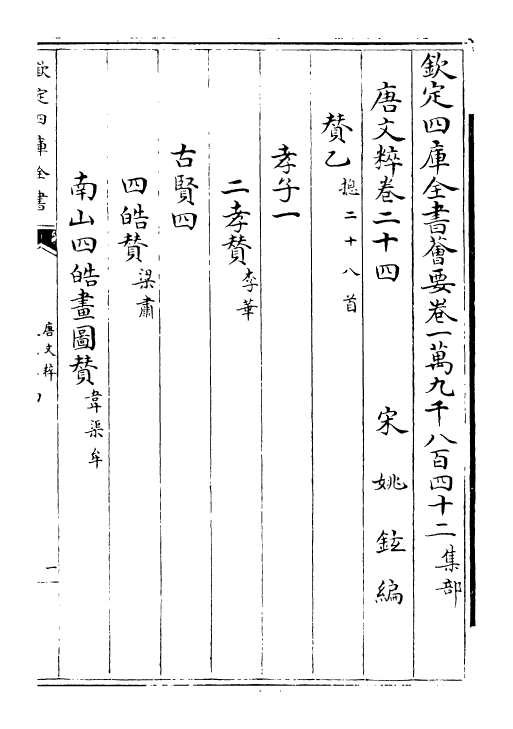 欽定四庫全書薈要卷一萬九千八百四十二集部
唐文粹卷二十四　宋　姚　鉉　編
贊乙總二十八首
孝子一
二孝贊李華
古賢四
四皓贊梁肅
南山四皓畫圖贊韋渠牟
欽定四庫全書
唐文粹
一